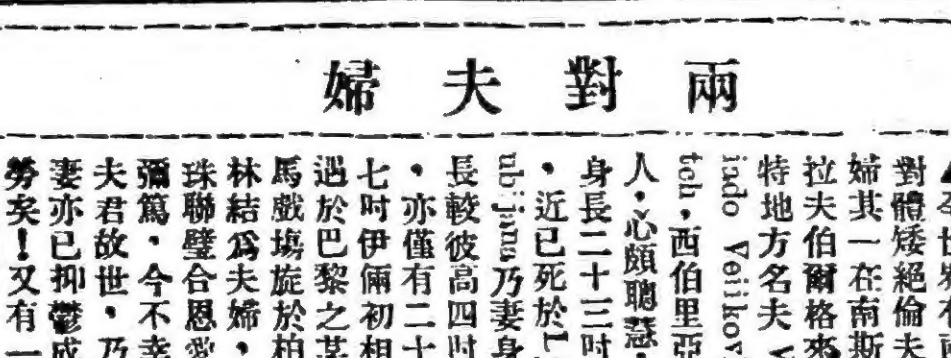 兩對夫婦
對體矮絕倫夫
婦其一在南斯
拉夫伯爾格來
特地方名夫 V
indo Veilkov
itch，西伯里亞
人，心頗聰慧，
身長二十三吋
，近已死於L
ubijana乃妻身
長較彼高四吋
，亦僅有二十
七吋伊倆初相
遇於巴黎之某
馬戲塲旋於柏
林結爲夫婦，
珠聯璧合恩愛
彌篤，今不幸
夫君故世，乃
妻亦已抑鬱成
勞矣！又有一